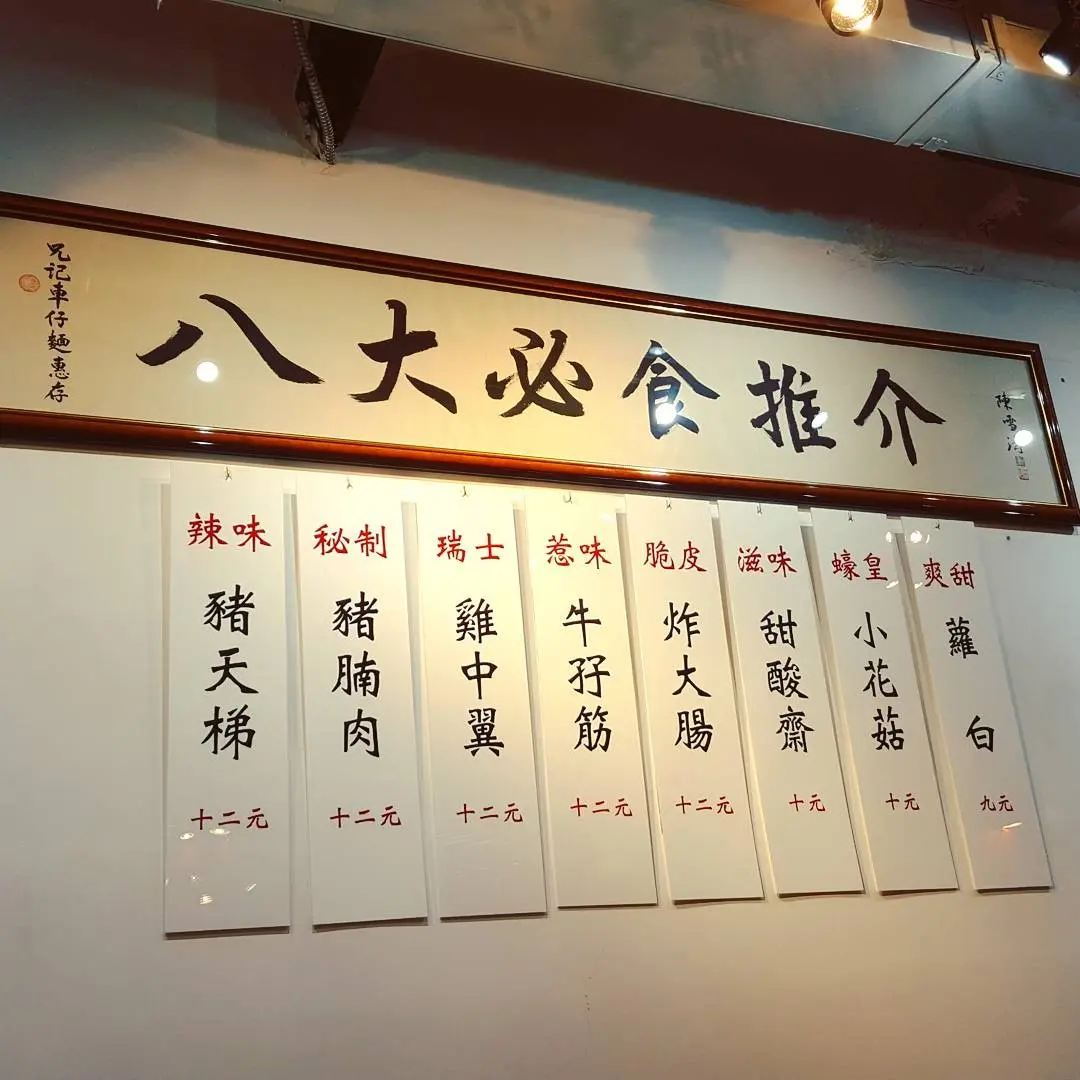 兄记車仔麵惠存
八大必食推介
陳雪
辣味
豬天梯
十二元
秘制
豬腩肉
十二元
瑞士
雞中翼
十二元
惹味
牛孖筋
十二元
脆皮
炸大腸
十二元
滋味
甜酸齋
十元
蠔皇
小花菇
十元
爽甜
蘿白
九元